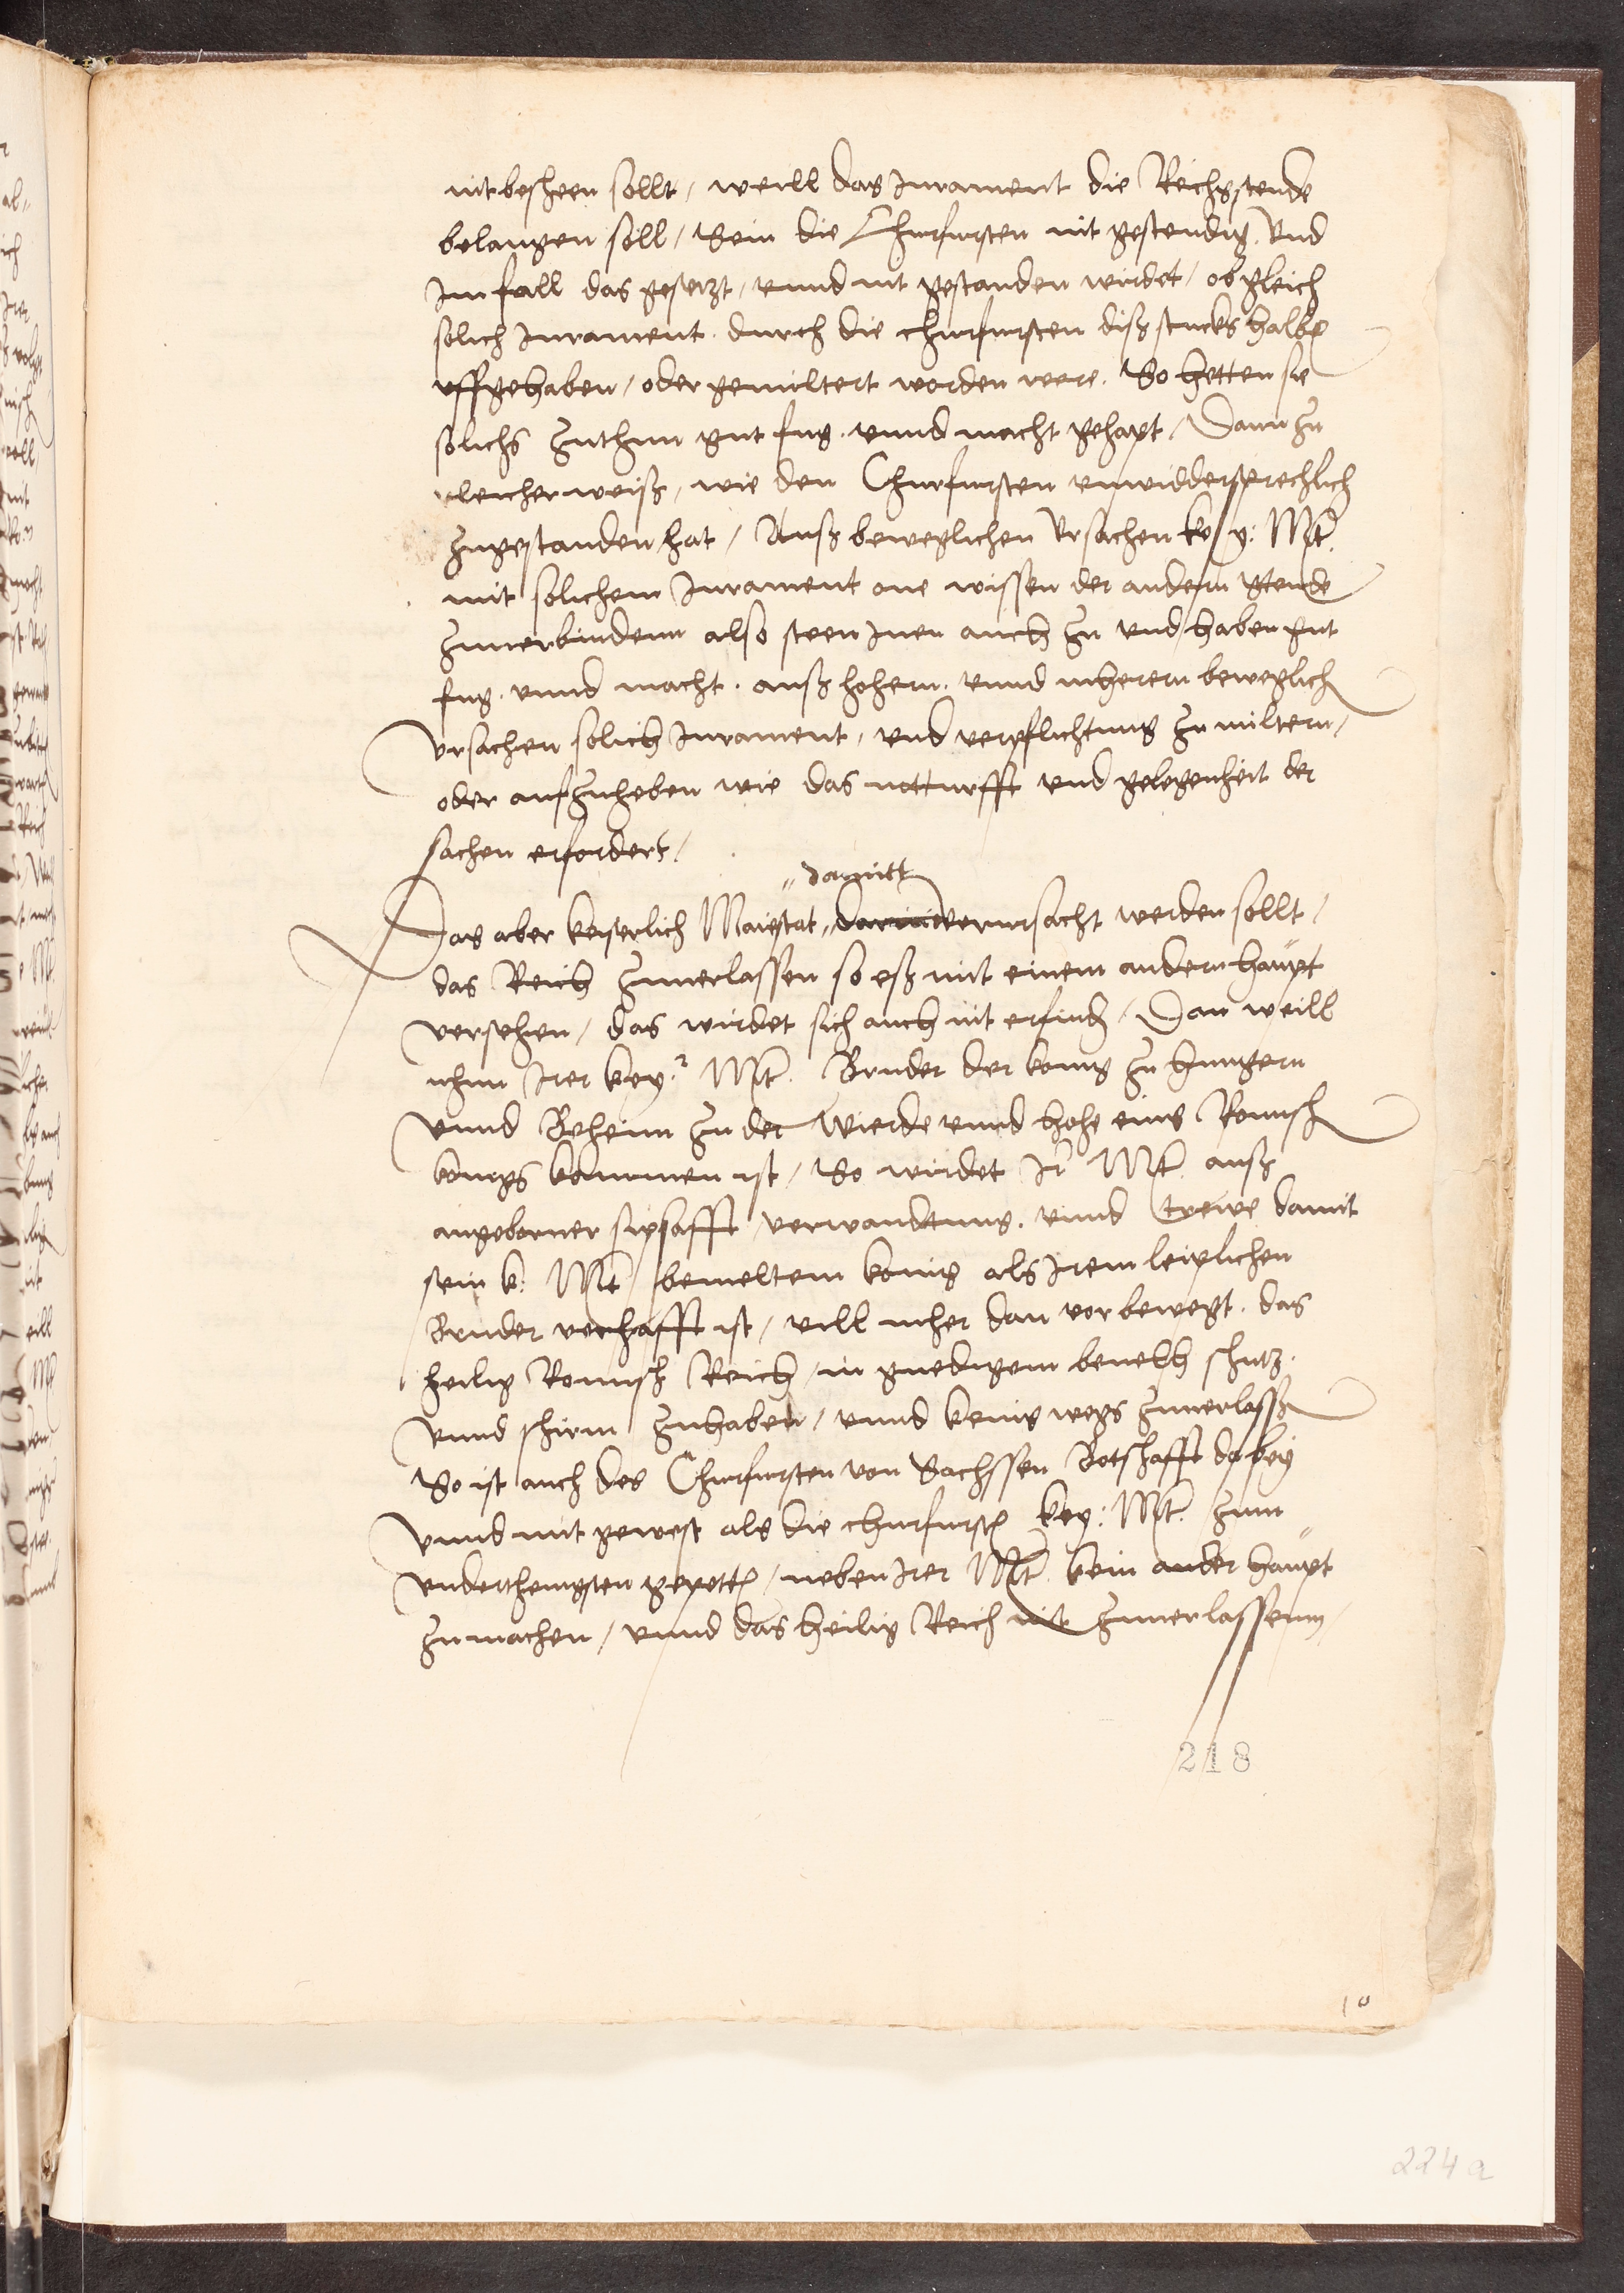 nit bescheen sollt / weill das Jurament die Reichsstende
belangen soll / Sein die Churfursten nit gestendig. Vnd
Im fall das gesetzt / vnnd nit gestanden wirdet / ob gleich
solich Jurament. durch die churfursten diss stucks halbe
vffgehaben / oder gemiltert worden were. So hetten sie
solichs zuthun gut fug. vnnd macht gehapt / Dann zu
gleicherweiss / wie den Churfursten vnwiddersprechlich
zugestanden hat / Auss beweglichen Vrsachen key: Mt.
mit solichem Jurament one wissen der andern Stende
zuuerbindenn also steen Inen auch zu vnd haben gut
fug. vnnd macht. auss hohern. vnnd mherern beweglich
Vrsachen solich Jurament / vnd verpflichtung zu miltern /
oder aufzuheben wie das notturfft vnd gelegenheit der
sachen erfordert /
damitt
Das aber keiserlich Maiestat verursacht werden sollt /
das Reich zuuerlassen so ess mit einem andern haupt
versehen / das wirdet sich auch nit erfind / Dan weill
nhun Irer key:r Mt. Bruder der konig zu Hungern
vnnd Beheim zu der wierde vnnd hohe eins Romisch
konigs kommen ist / So wirdet Ir Mt. auss
angeborner sipsafft verwandtnus. vnnd trewe damit
sein k: Mt bemeltem konig als Irem leiplichen
Bruder verhafft ist / vill mher dan vor bewegt. das
heilig Romisch Reich / in gnedigem beuelch schutz.
vnnd schirm zuhaben / vnnd keins wegs zuuerlassen
So ist auch des Churfursten von Sachssen Botschafft dabey
vnnd mit gewest als die churfursten key: Mt. zum
vnderthenigsten gepetten / neben Irer Mt. kein ander haupt
zumachen / vnnd das heilig Reich nit zuuerlassenn /
218
10
224a